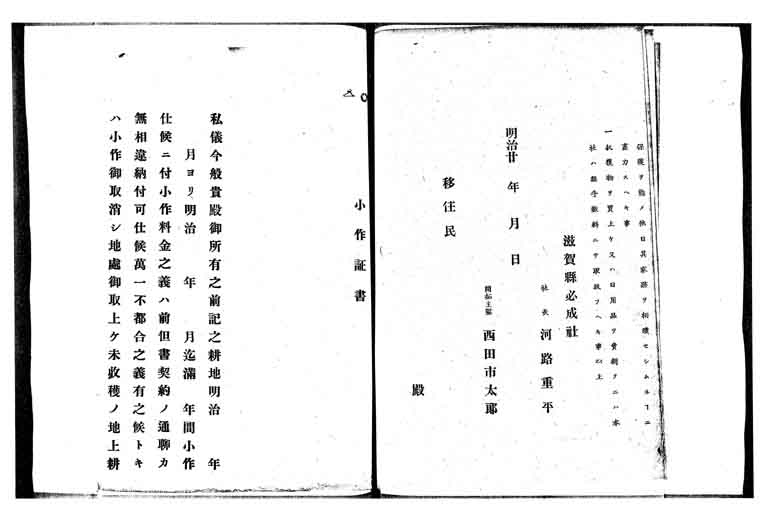 保護ヲ勉メ休日其家族ヲ相續セシムルヿニ
盡力スヘキ事
一収穫物ヲ買上ケ又ハ日用品ヲ賣捌クニハ本
社ハ無手數料ニテ取扱フヘキ事以上
滋賀縣必成社
社長 河路重平
明治廿 年 月 日
開拓主監 西田市太郎
移住民 殿
小作証書
私儀今般貴殿御所有之前記之耕地明治 年
月ヨリ明治 年 月迄滿 年間小作
仕候ニ付小作料金之義ハ前但書契約ノ通聊カ
無相違納付可仕候萬一不都合之義有之候トキ
ハ小作御取消シ地處御取上ケ未收穫ノ地上耕